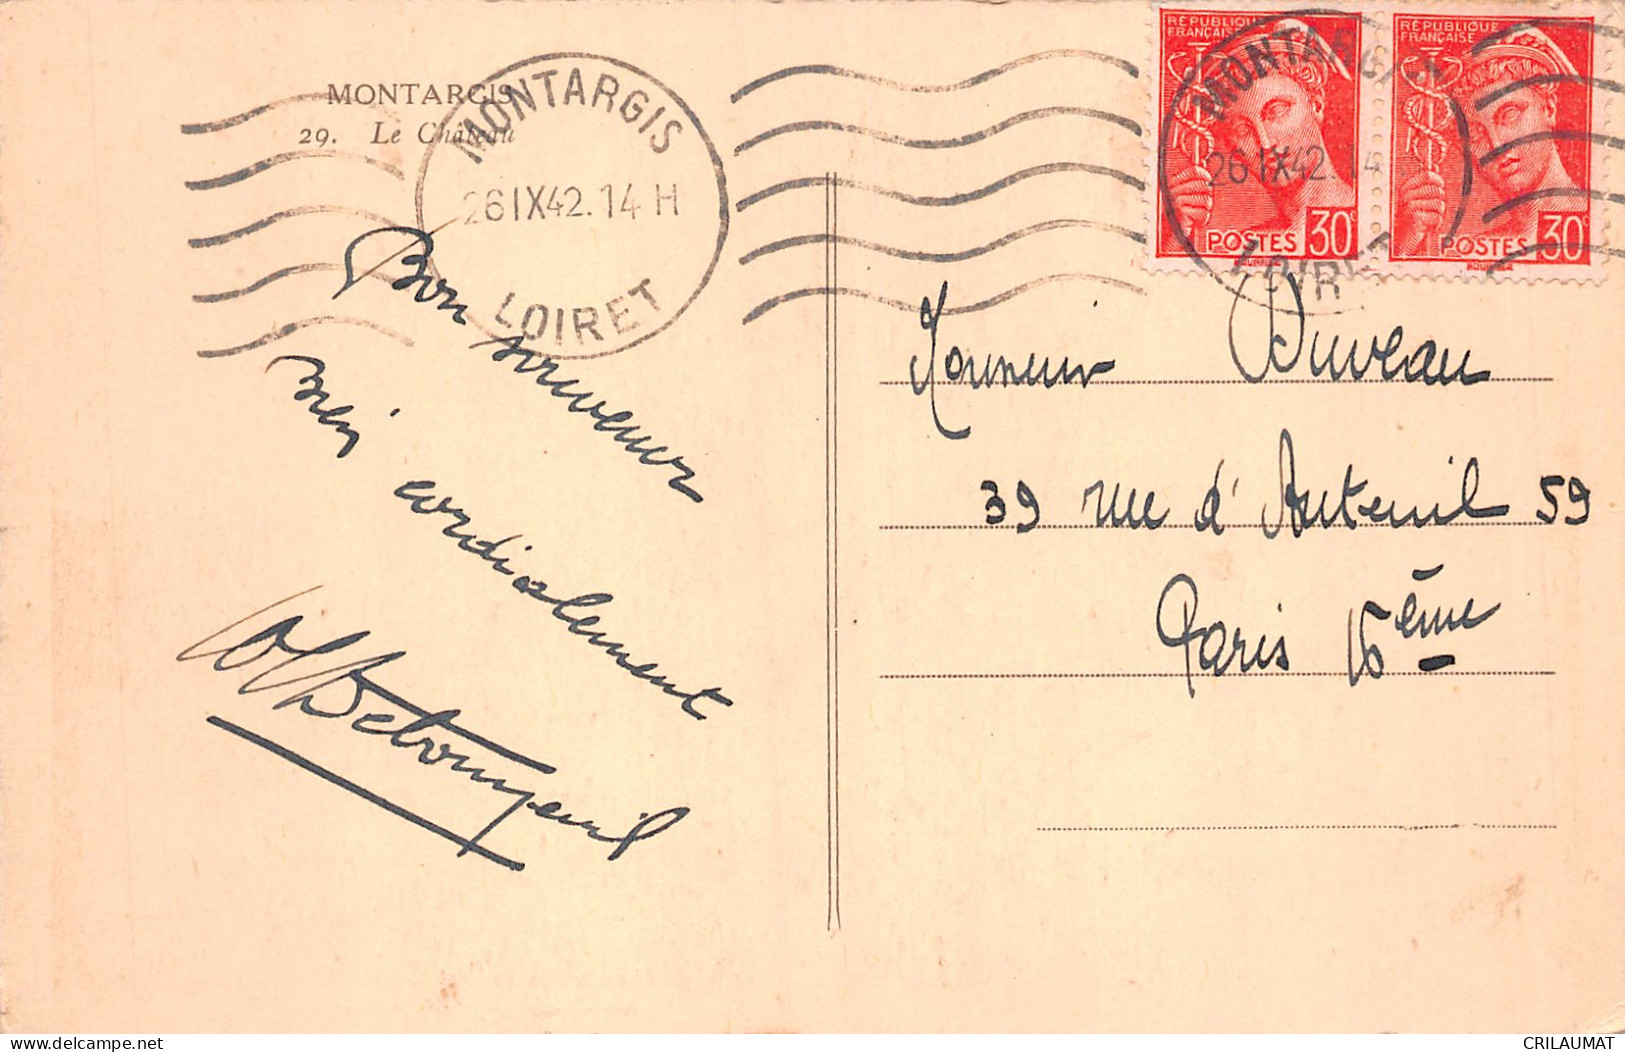 MONTARGIS
29. Le Château
MONTARGIS
26 IX 42. 14 H
LOIRET
RÉPUBLIQUE
FRANÇAISE
POSTES 30c
RÉPUBLIQUE
FRANÇAISE
POSTES 30c
MONTARGIS
26 IX 42. 14
LOIRET
Bon souvenir
cordialement
Monsieur Duveau
39 rue d'Auteuil 59
Paris 16ème
delcampe.net
CRILAUMAT